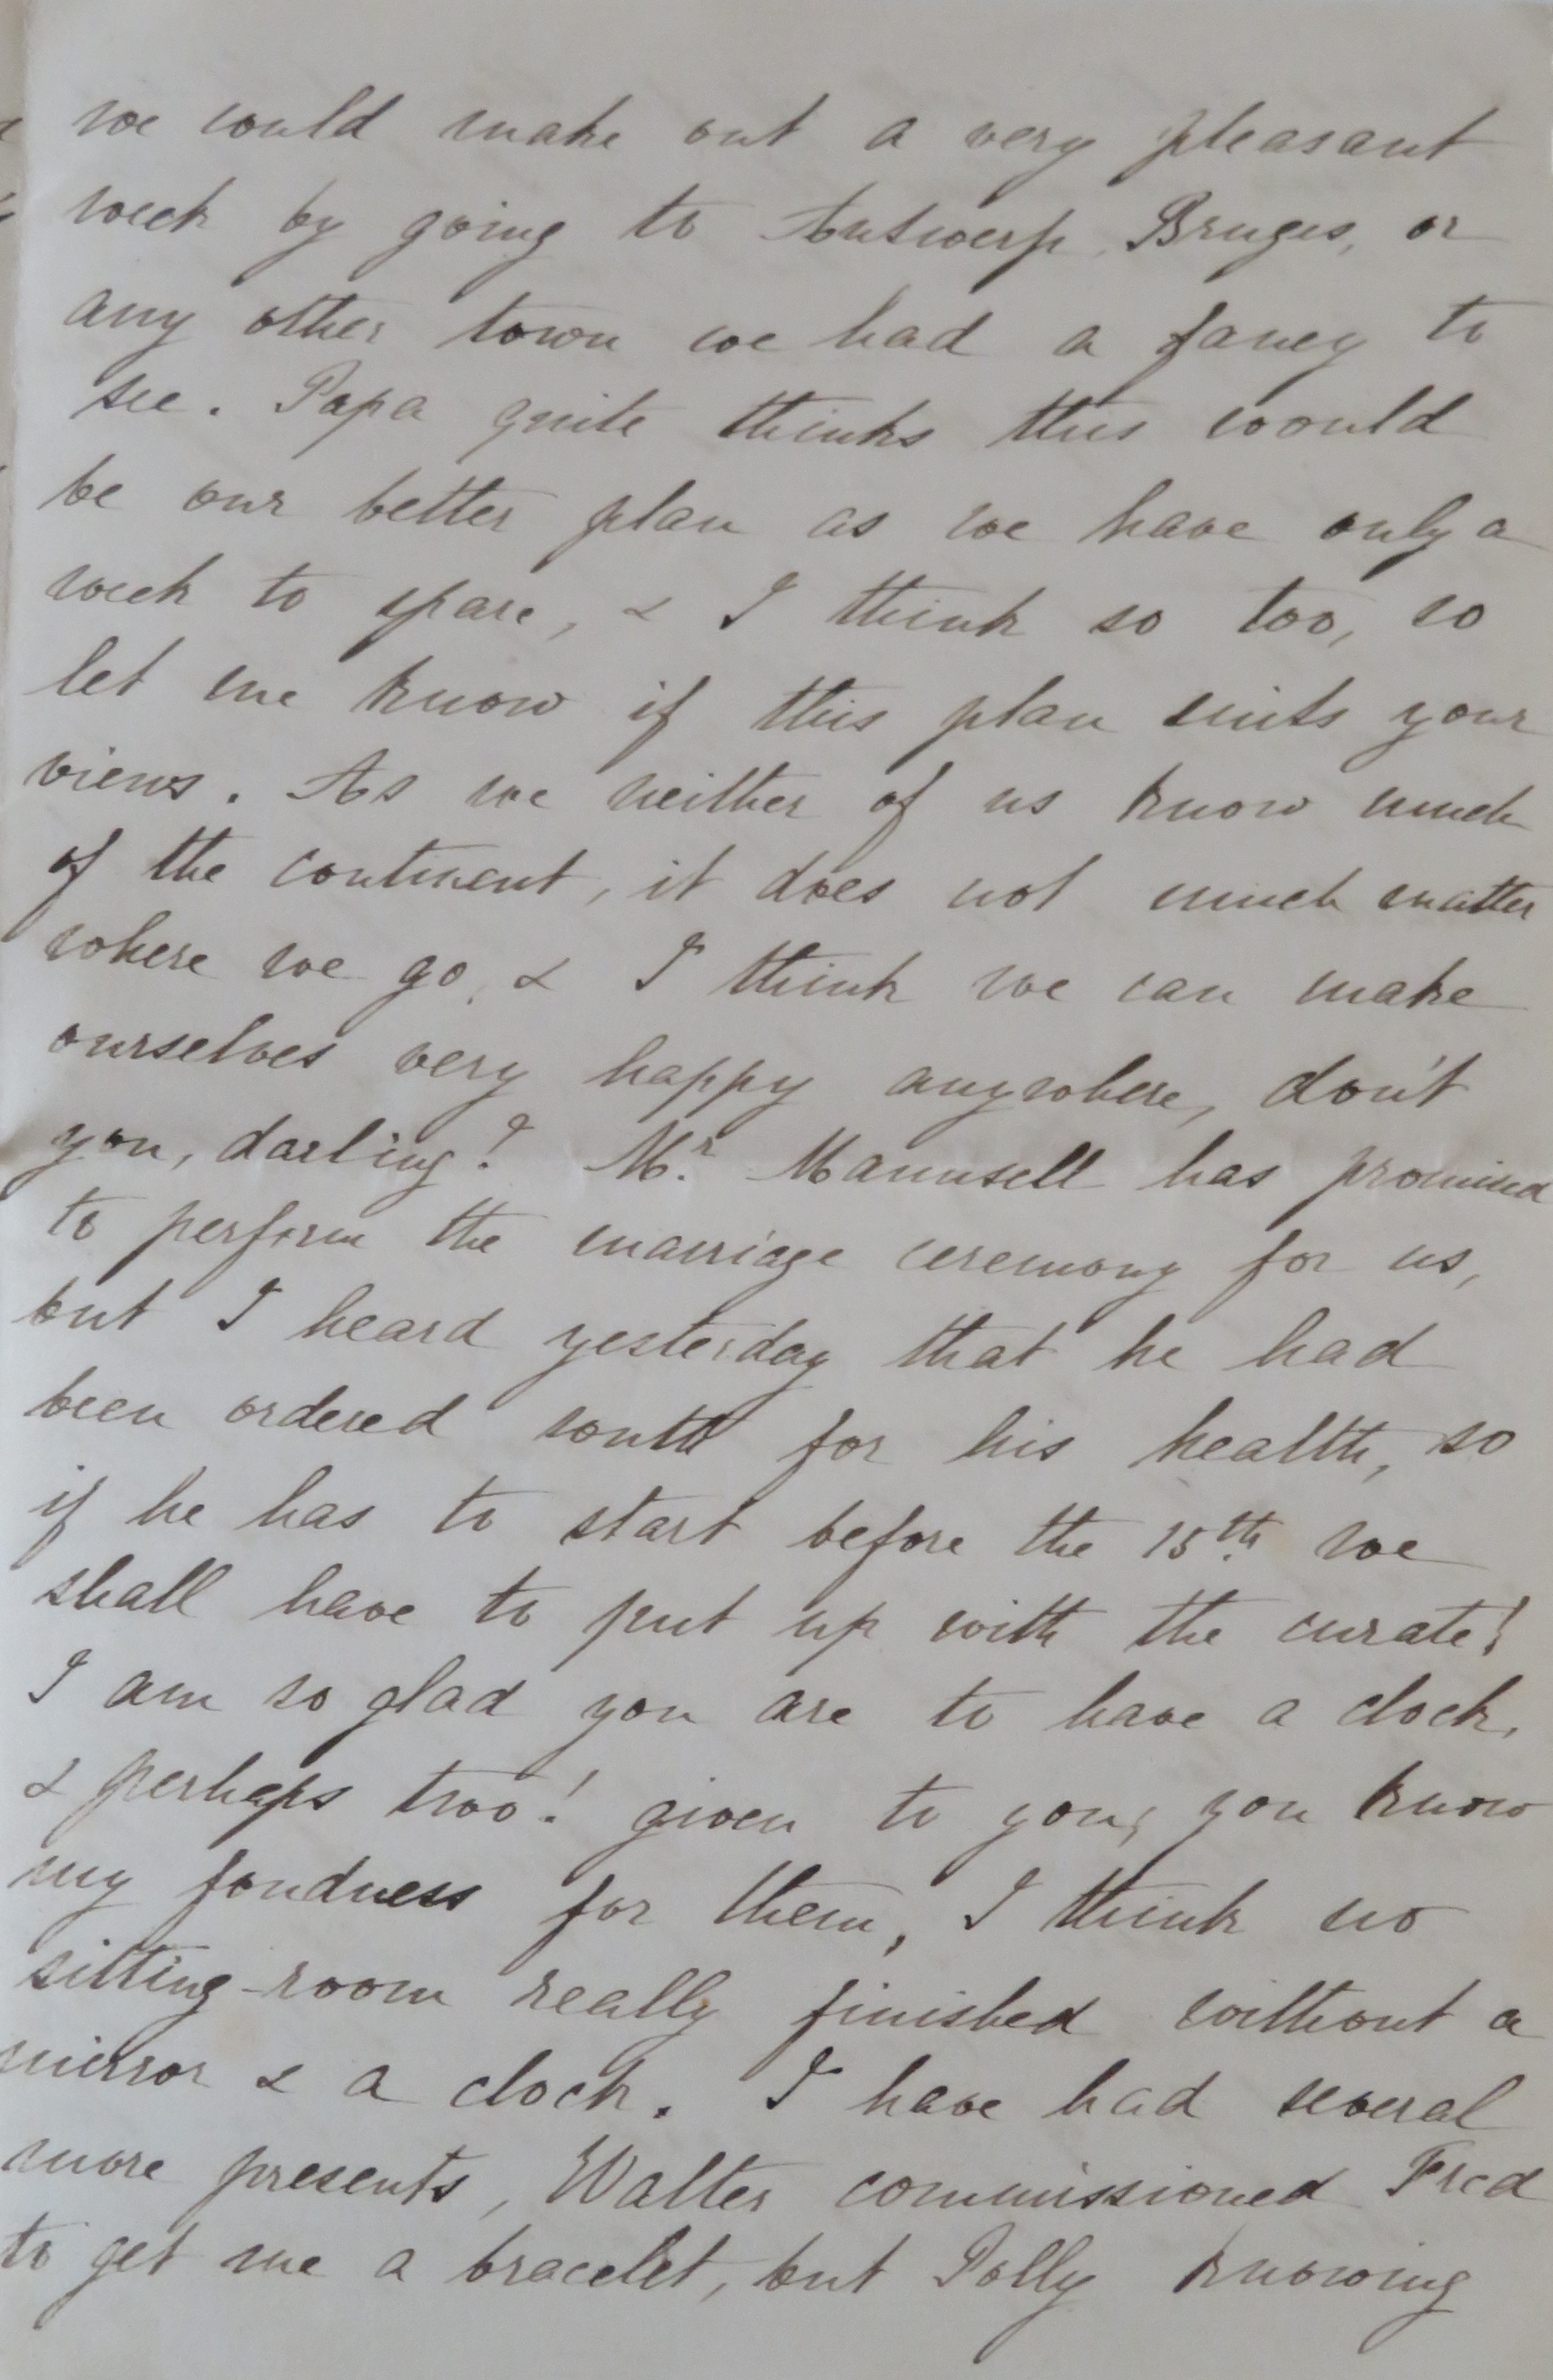 we could make out a very pleasant
week by going to Antwerp, Bruges, or
any other town we had a fancy to
see. Papa quite thinks this would
be our better plan as we have only a
week to spare, & I think so too, so
let me know if this plan suits your
views. As we neither of us know much
of the continent, it does not much matter
where we go, & I think we can make
ourselves very happy anywhere, don't
you, darling? Mr. Maunsell has promised
to perform the marriage ceremony for us,
but I heard yesterday that he had
been ordered south for his health, so
if he has to start before the 15th. we
shall have to put up with the curate!
I am so glad you are to have a clock,
& perhaps two! given to you, you know
my fondness for them, I think no
sitting-room really finished without a
mirror & a clock. I have had several
more presents, Walter commissioned Fred
to get me a bracelet, but Polly knowing